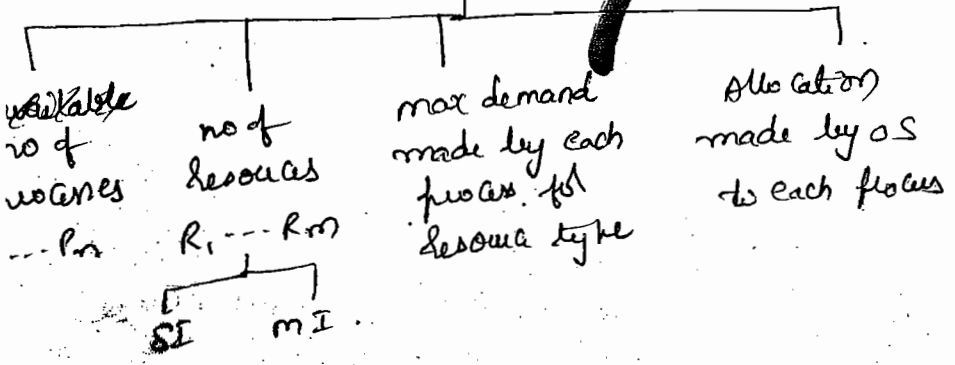 no of
... Pn
no of
Resouces
R1 --- Rm
SI mI.
max demand
made by each
process for
Resource type
Allocation
made by OS
to each process